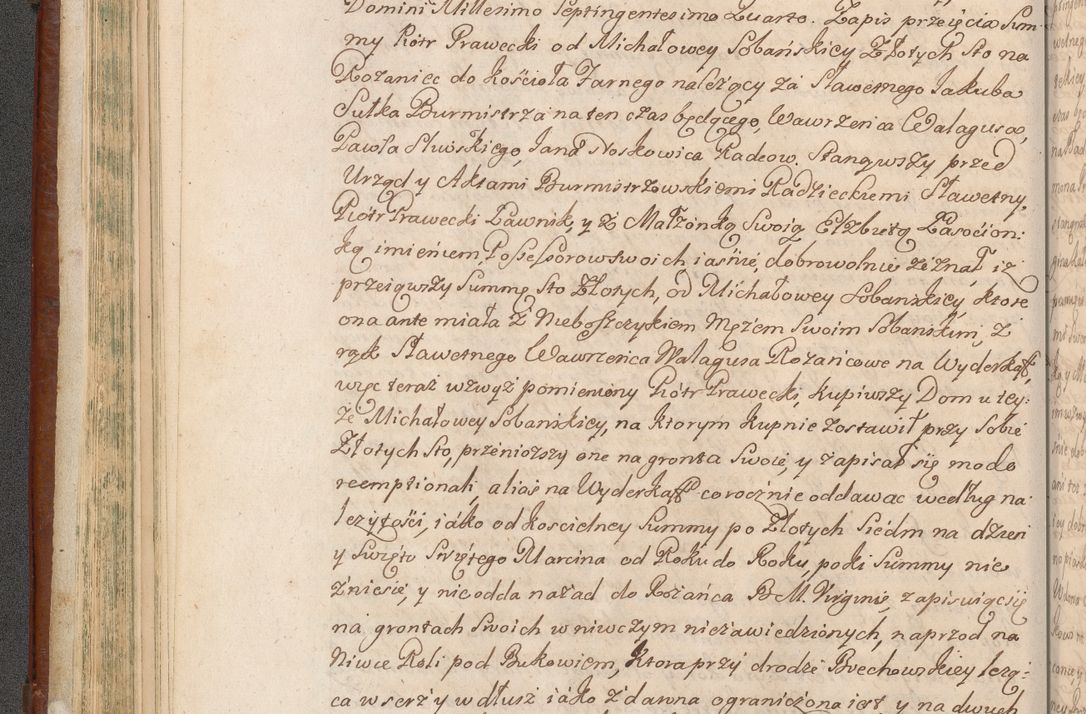 Domini Millesimo Septingentesimo Quarto. Zapis przeięcia Sum-
my Piotr Prawecki od Michałowey Sobańskiey Złotych Sto na
Rożaniec do Kościoła Farnego należący za Sławetnego Iakuba
Sułka Burmistrza na ten czas będącego, Wawrzeńca Walagusa,
Pawła Sluwskiego, Iana Noskowica Radcow. Stanąwszy przed
Urząd y Aktami Burmistrzowskiemi Radzieckiemi Sławetny
Piotr Prawecki Ławnik, y z Małżonką Swoią Elżbietą Łasocion:
ką imieniem Possessorow swoich iaśnie, dobrowolnie zeznał iż
przeiąwszy Summę Sto Złotych, od Michałowey Sobanskiey, ktore
ona ante miała z Nieboszczykiem Mężem Swoim Sobańskim, z
rąk Sławetnego Wawrzeńca Walagusa Rożańcowe na Wyderkaff,
więc teraz wzwyż pomieniony Piotr Prawecki, kupiwszy Dom u tey:
że Michałowey Sobanskiey, na ktorym kupnie zostawił przy Sobie
Złotych Sto, przeniozszy one na gronta Swoie, y zapisał się modo
reemptionali, alias na Wyderkaff corocznie oddawac według na:
leżytości, iáko od koscielney Summy po Złotych Siedm na dzień
y Swięto Swiętego Marcina od Roku do Roku, poki Summy nie
zniesie, y nie odda nazad do Rożańca B. M. Virginie, zapisuiąc się
na grontach Swoich w niwczym niezawiedzionych, naprzod na
Niwce Roli pod Bukowiem, ktora przy drodze Brechowskiey leżą:
ca w szerz y w dłusz iáko zdawna ograniczona iest y na dwuch